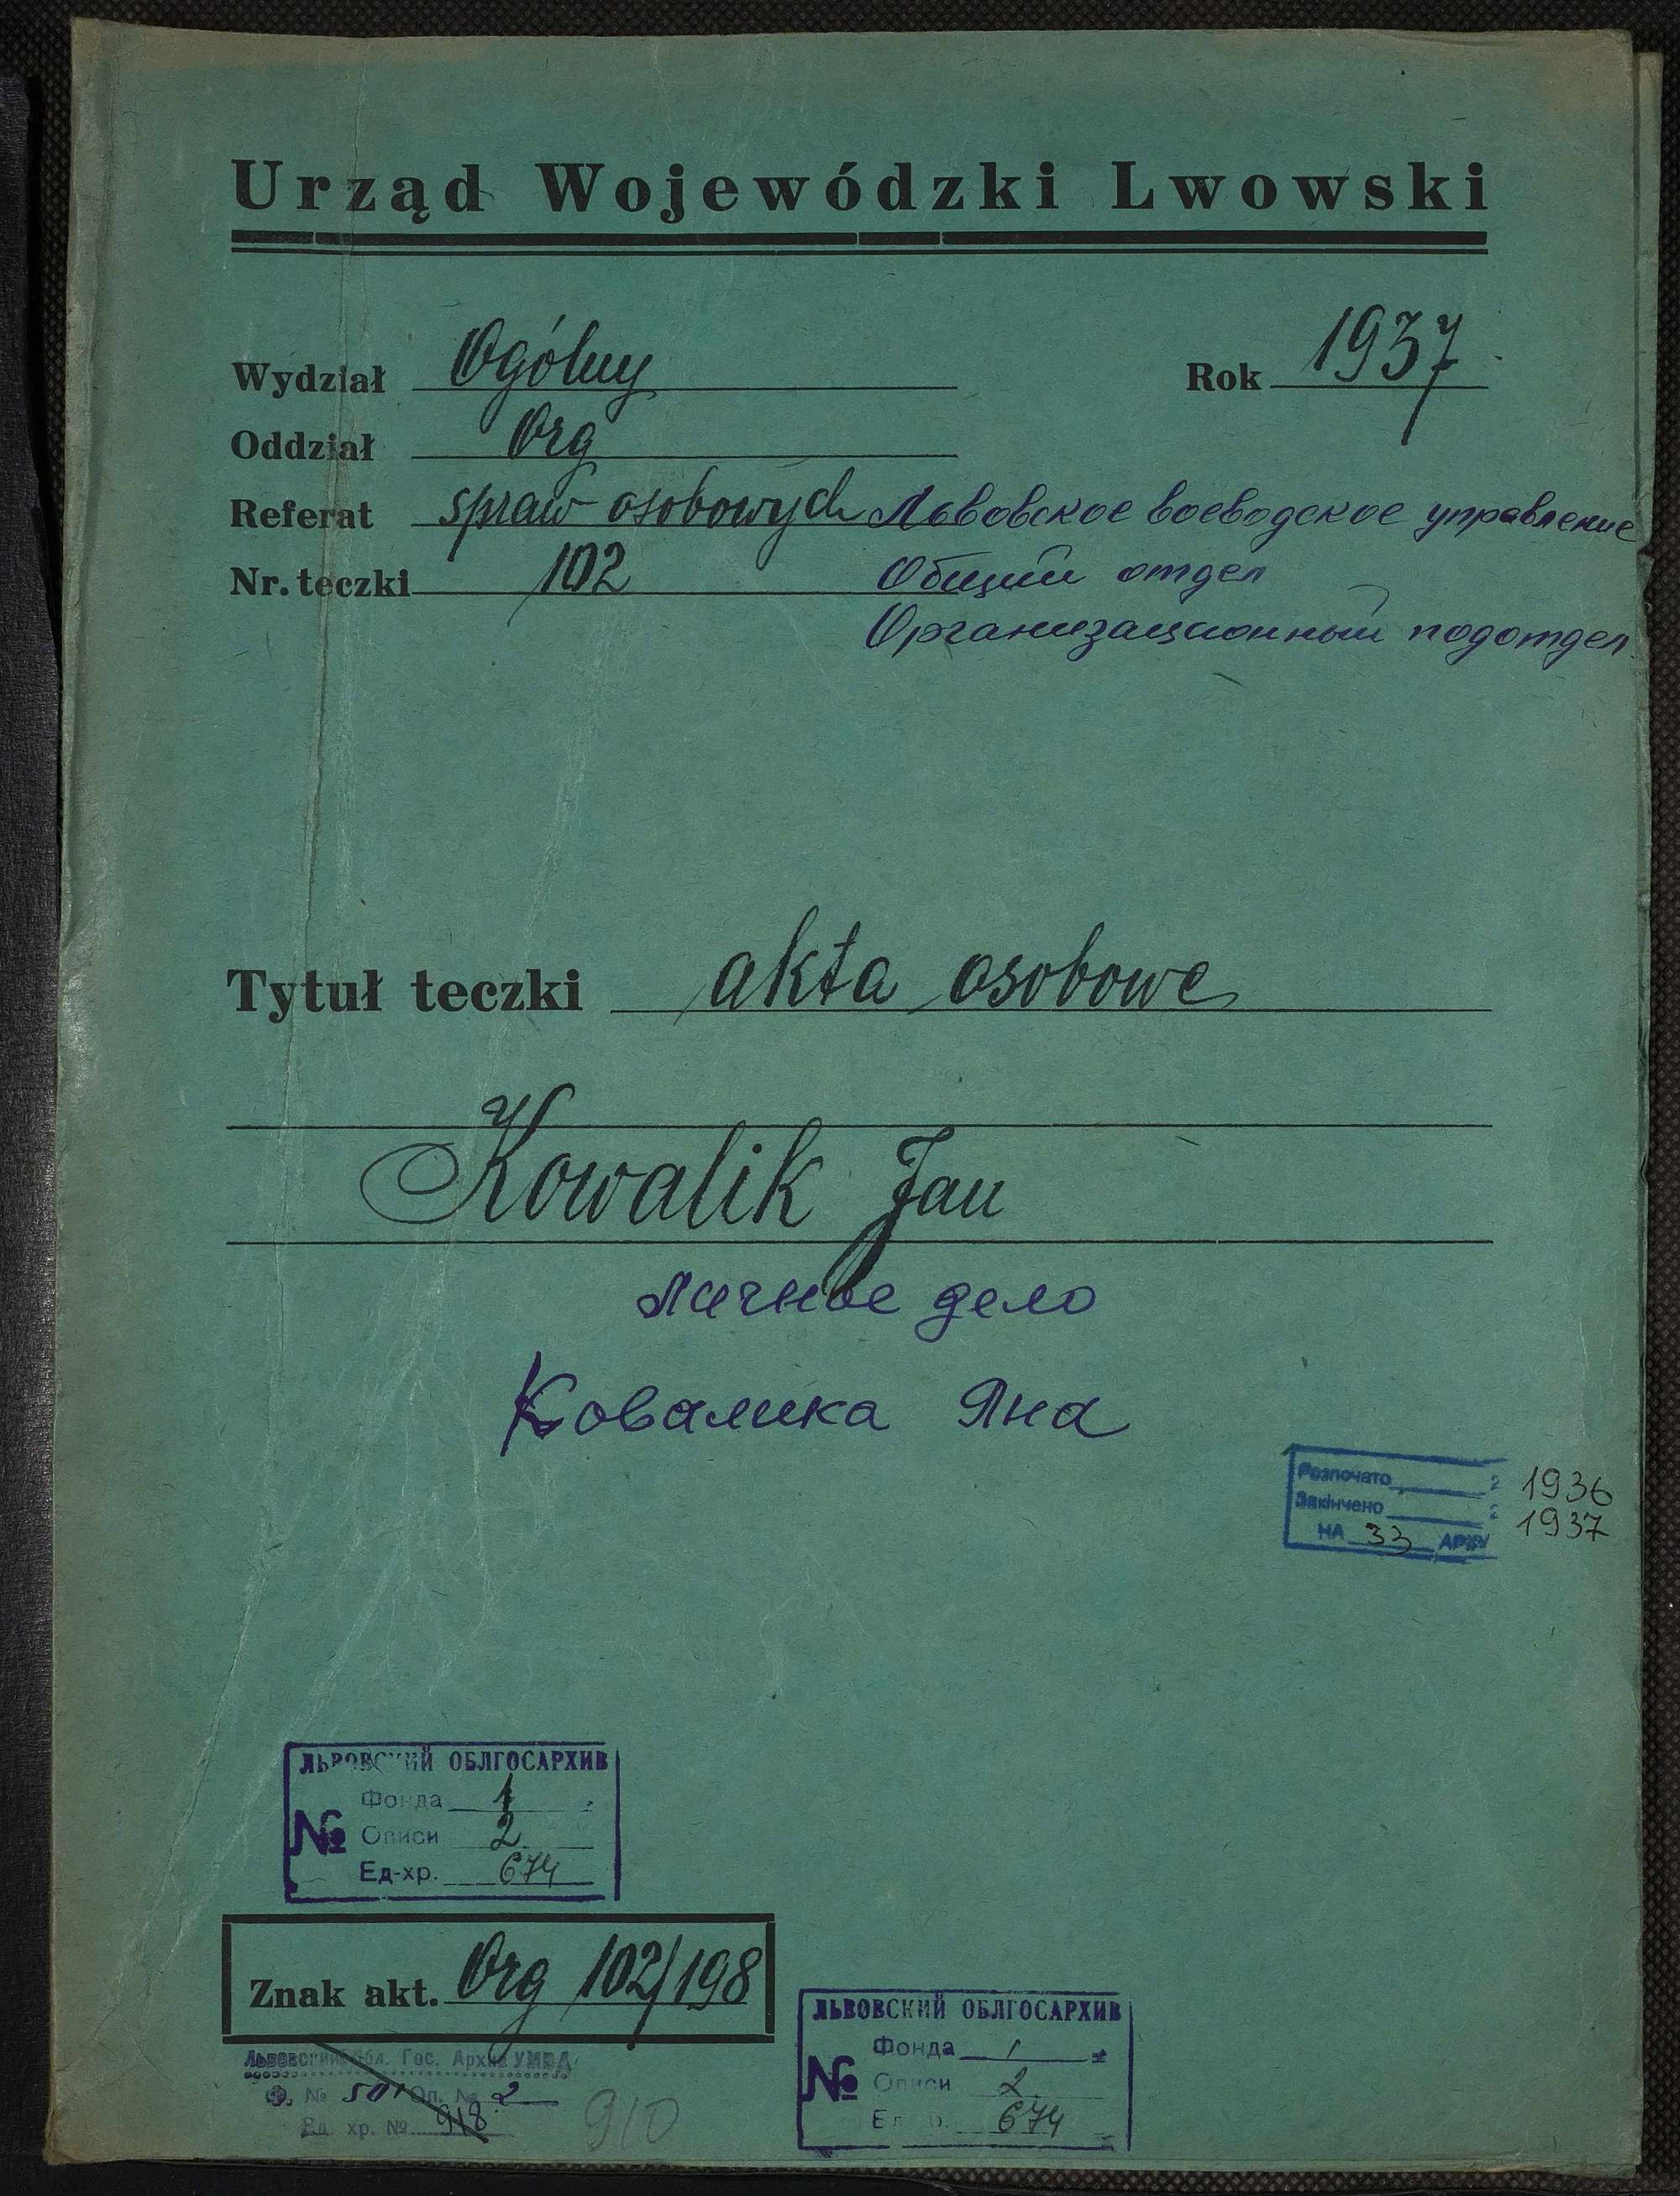 Urząd Wojewódzki Lwowski
Wydział Ogólny Rok 1937
Oddział Org
Referat spraw osobowych Львовское воеводское управление
Nr. teczki 102 Общий отдел
Организационный подотдел
Tytuł teczki akta osobowe
Kowalik Jan
Личное дело
Ковалика Яна
Розпочато 1936
Закінчено 1937
НА 33 АРК
ЛЬВОВСКИЙ ОБЛГОСАРХИВ
Фонда 1
№ Описи 2
Ед-хр. 674
Znak akt. Org 102/198
Львовский Обл. Гос. Архив УМВД
Ф. № 501 Оп. № 2
Ед. хр. № 918
910
ЛЬВОВСКИЙ ОБЛГОСАРХИВ
Фонда 1
№ Описи 2
Ед-хр. 674